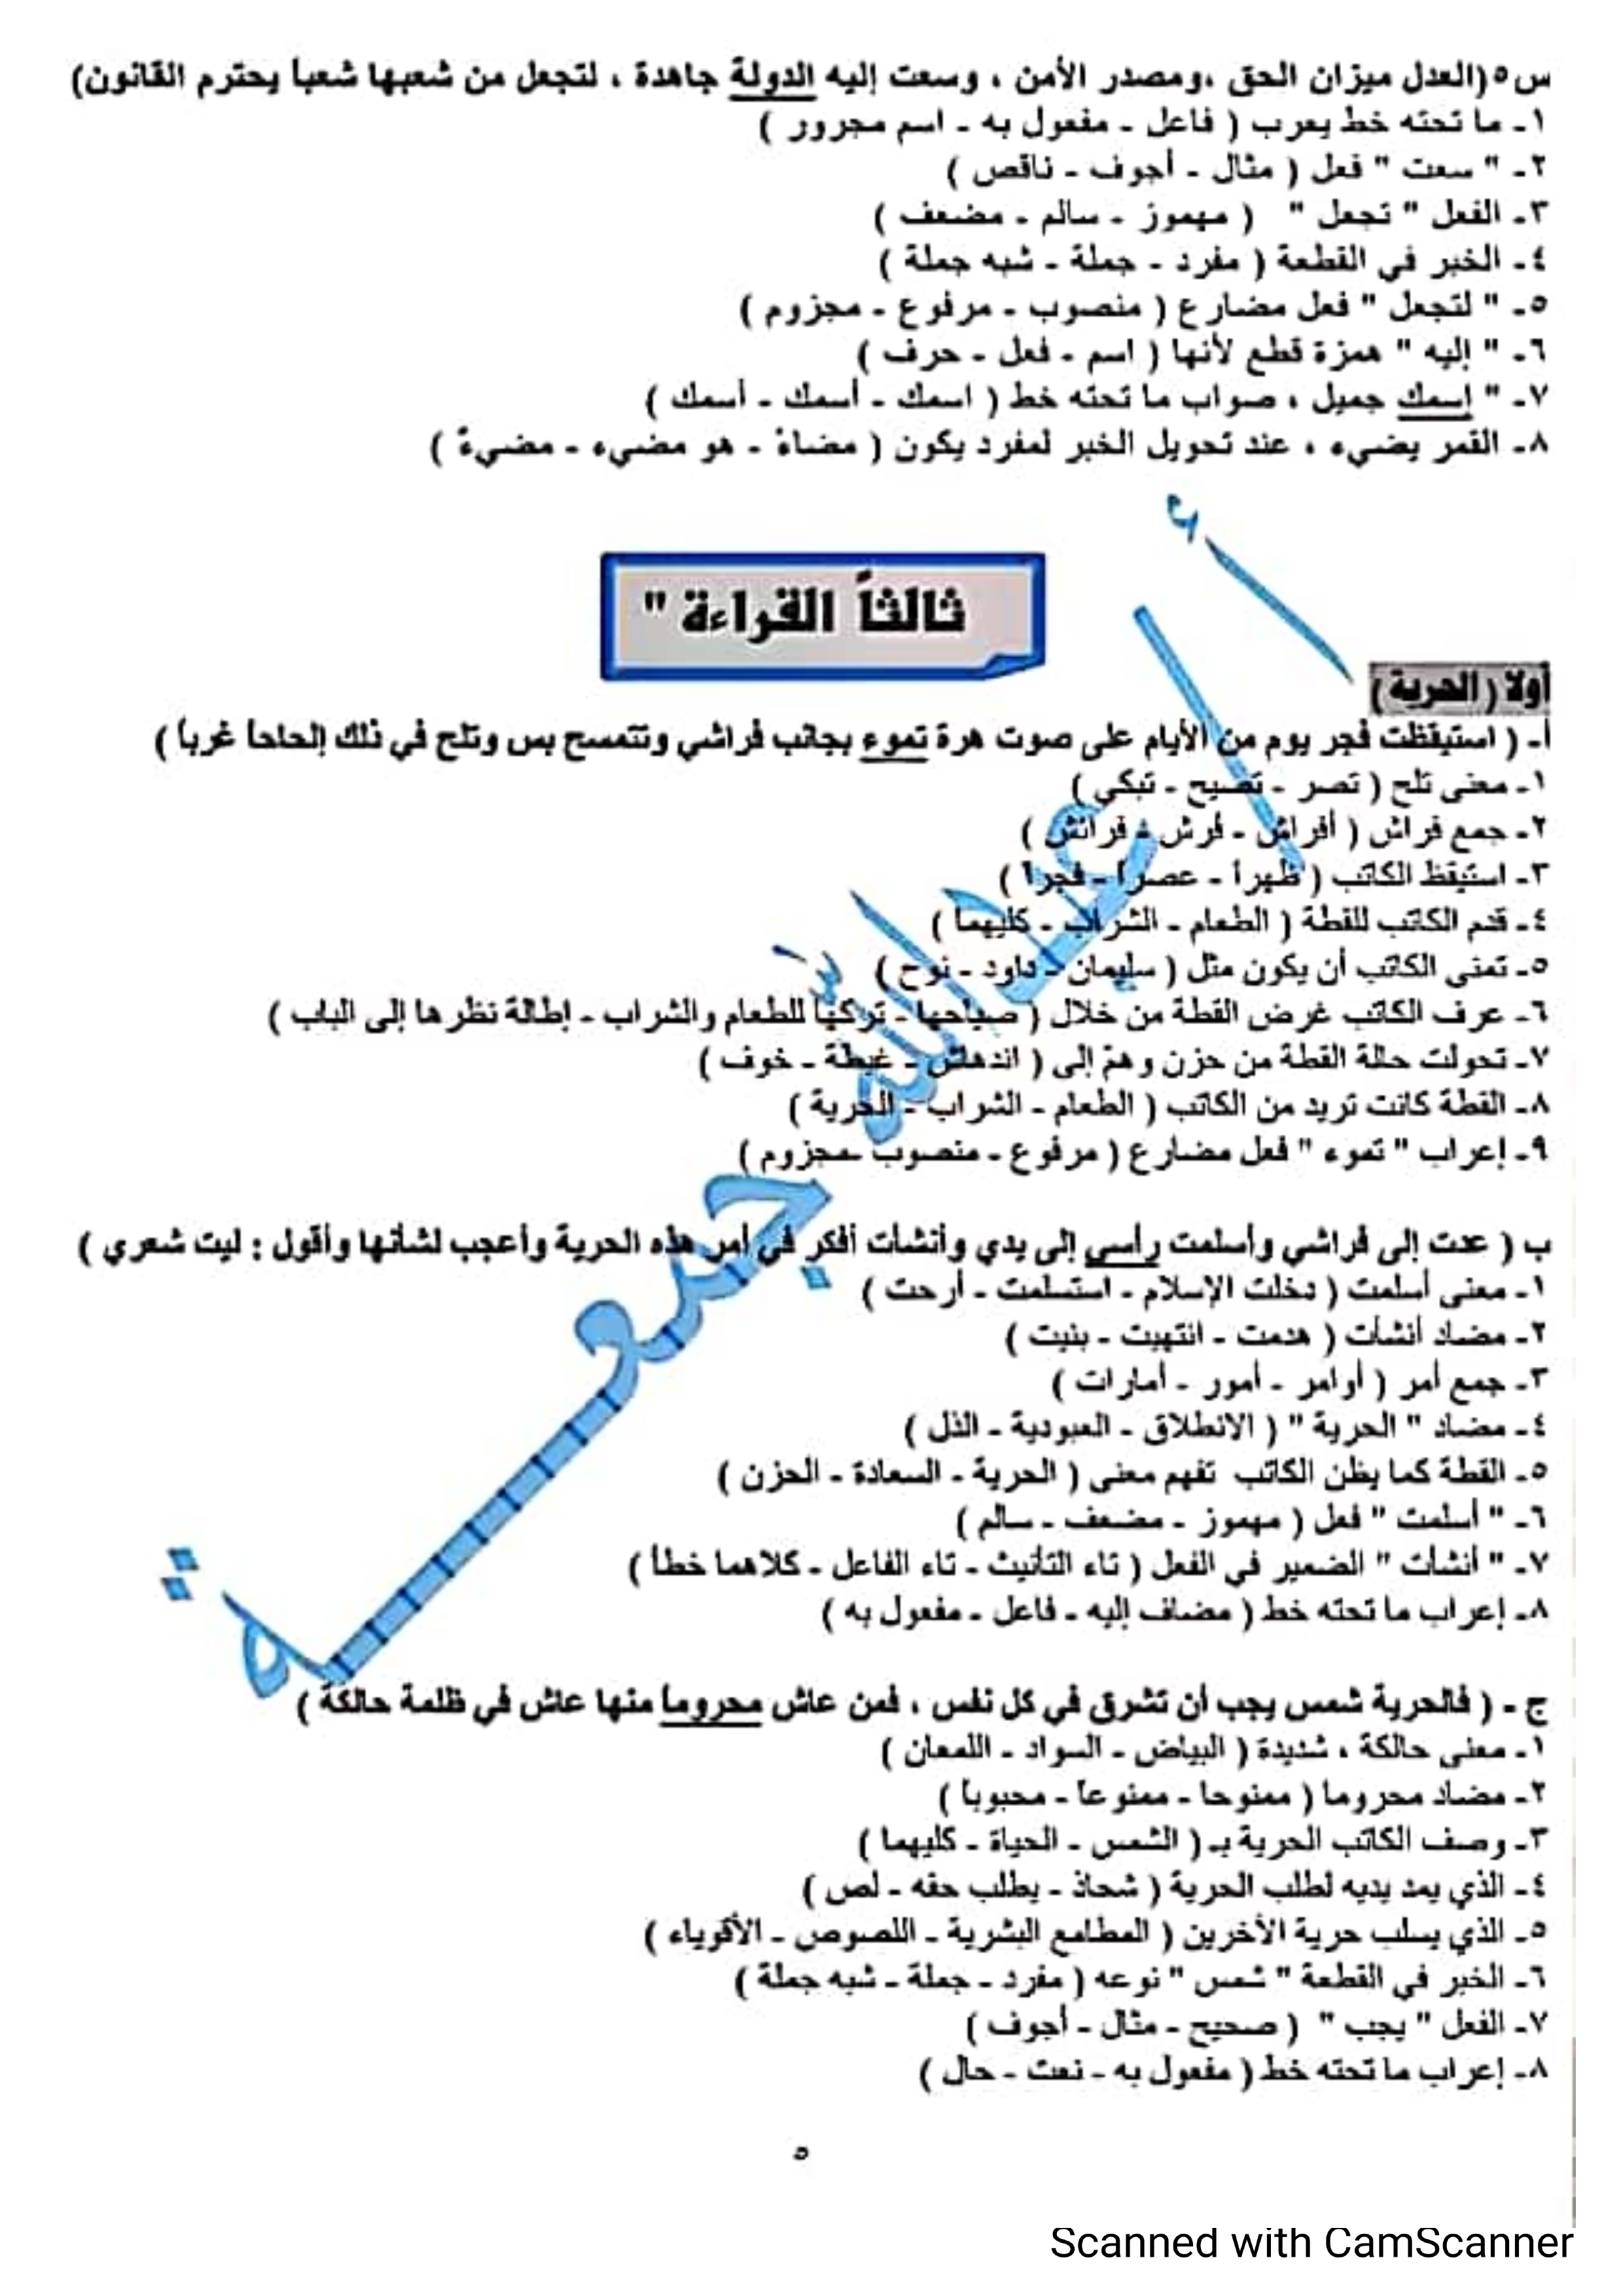 س٥(العدل ميزان الحق ،ومصدر الأمن ، وسعت إليه الدولة جاهدة ، لتجعل من شعبها شعباً يحترم القانون)
١- ما تحته خط يعرب ( فاعل - مفعول به - اسم مجرور )
٢- " سعت " فعل ( مثال - أجوف - ناقص )
٣- الفعل " تجعل " ( مهموز - سالم - مضعف )
٤- الخبر في القطعة ( مفرد - جملة - شبه جملة )
٥- " لتجعل " فعل مضارع ( منصوب - مرفوع - مجزوم )
٦- " إليه " همزة قطع لأنها ( اسم - فعل - حرف )
٧- " إسمك جميل ، صواب ما تحته خط ( اسمك - أسمك - أسمك )
٨- القمر يضيء ، عند تحويل الخبر لمفرد يكون ( مضاءً - هو مضيء - مضيءٌ )
ثالثاً القراءة "
أولا ( الحرية )
أ- ( استيقظت فجر يوم من الأيام على صوت هرة تموء بجانب فراشي وتتمسح بس وتلح في ذلك إلحاحاً غرباً )
١- معنى تلح ( تصر - تصيح - تبكي )
٢- جمع فراش ( أفراش - فرش - فرائش )
٣- استيقظ الكاتب ( ظهراً - عصراً - فجراً )
٤- قدم الكاتب للقطة ( الطعام - الشراب - كليهما )
٥- تمنى الكاتب أن يكون مثل ( سليمان - داود - نوح )
٦- عرف الكاتب غرض القطة من خلال ( صياحها - تركها للطعام والشراب - إطالة نظرها إلى الباب )
٧- تحولت حالة القطة من حزن وهمّ إلى ( اندهاش - غبطة - خوف )
٨- القطة كانت تريد من الكاتب ( الطعام - الشراب - الحرية )
٩- إعراب " تموء " فعل مضارع ( مرفوع - منصوب -مجزوم )
ب ( عدت إلى فراشي وأسلمت رأسي إلى يدي وأنشأت أفكر في أمر هذه الحرية وأعجب لشأنها وأقول : ليت شعري )
١- معنى أسلمت ( دخلت الإسلام - استسلمت - أرحت )
٢- مضاد أنشأت ( هدمت - انتهيت - بنيت )
٣- جمع أمر ( أوامر - أمور - أمارات )
٤- مضاد " الحرية " ( الانطلاق - العبودية - الذل )
٥- القطة كما يظن الكاتب تفهم معنى ( الحرية - السعادة - الحزن )
٦- " أسلمت " فعل ( مهموز - مضعف - سالم )
٧- " أنشأت " الضمير في الفعل ( تاء التأنيث - تاء الفاعل - كلاهما خطأ )
٨- إعراب ما تحته خط ( مضاف إليه - فاعل - مفعول به )
ج - ( فالحرية شمس يجب أن تشرق في كل نفس ، فمن عاش محروماً منها عاش في ظلمة حالكة )
١- معنى حالكة ، شديدة ( البياض - السواد - اللمعان )
٢- مضاد محروما ( ممنوحا - ممنوعاً - محبوباً )
٣- وصف الكاتب الحرية بـ ( الشمس - الحياة - كليهما )
٤- الذي يمد يديه لطلب الحرية ( شحاذ - يطلب حقه - لص )
٥- الذي يسلب حرية الأخرين ( المطامع البشرية - اللصوص - الأقوياء )
٦- الخبر في القطعة " شمس " نوعه ( مفرد - جملة - شبه جملة )
٧- الفعل " يجب " ( صحيح - مثال - أجوف )
٨- إعراب ما تحته خط ( مفعول به - نعت - حال )
أ / عبد الله جمعة
٥
Scanned with CamScanner